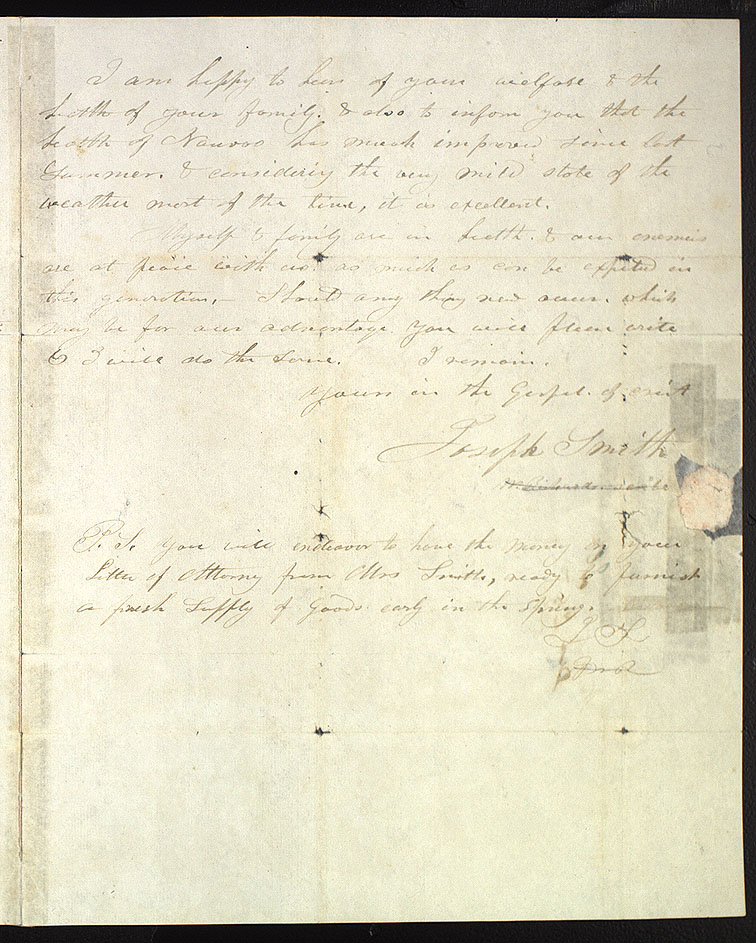 I am happy to hear of your welfare & the
health of your family. & also to inform you that the
health of Nauvoo has much improved since last
Summer. & considering the very mild state of the
weather most of the time, it is excellent.
Myself & family are in health. & our enemies
are at peace with us. as much as can be expected in
this generation.— Should any thing new occur. which
may be for our advantage you will please write
& I will do the same. I remain.
Yours in the Gospel. of
Joseph Smith
W. Richards. scribe
P. S. You will endeavor to have the money on your
Letter of Attorney from Mrs Smith, ready to furnish
a fresh Supply of Goods early in the Spring.
J S